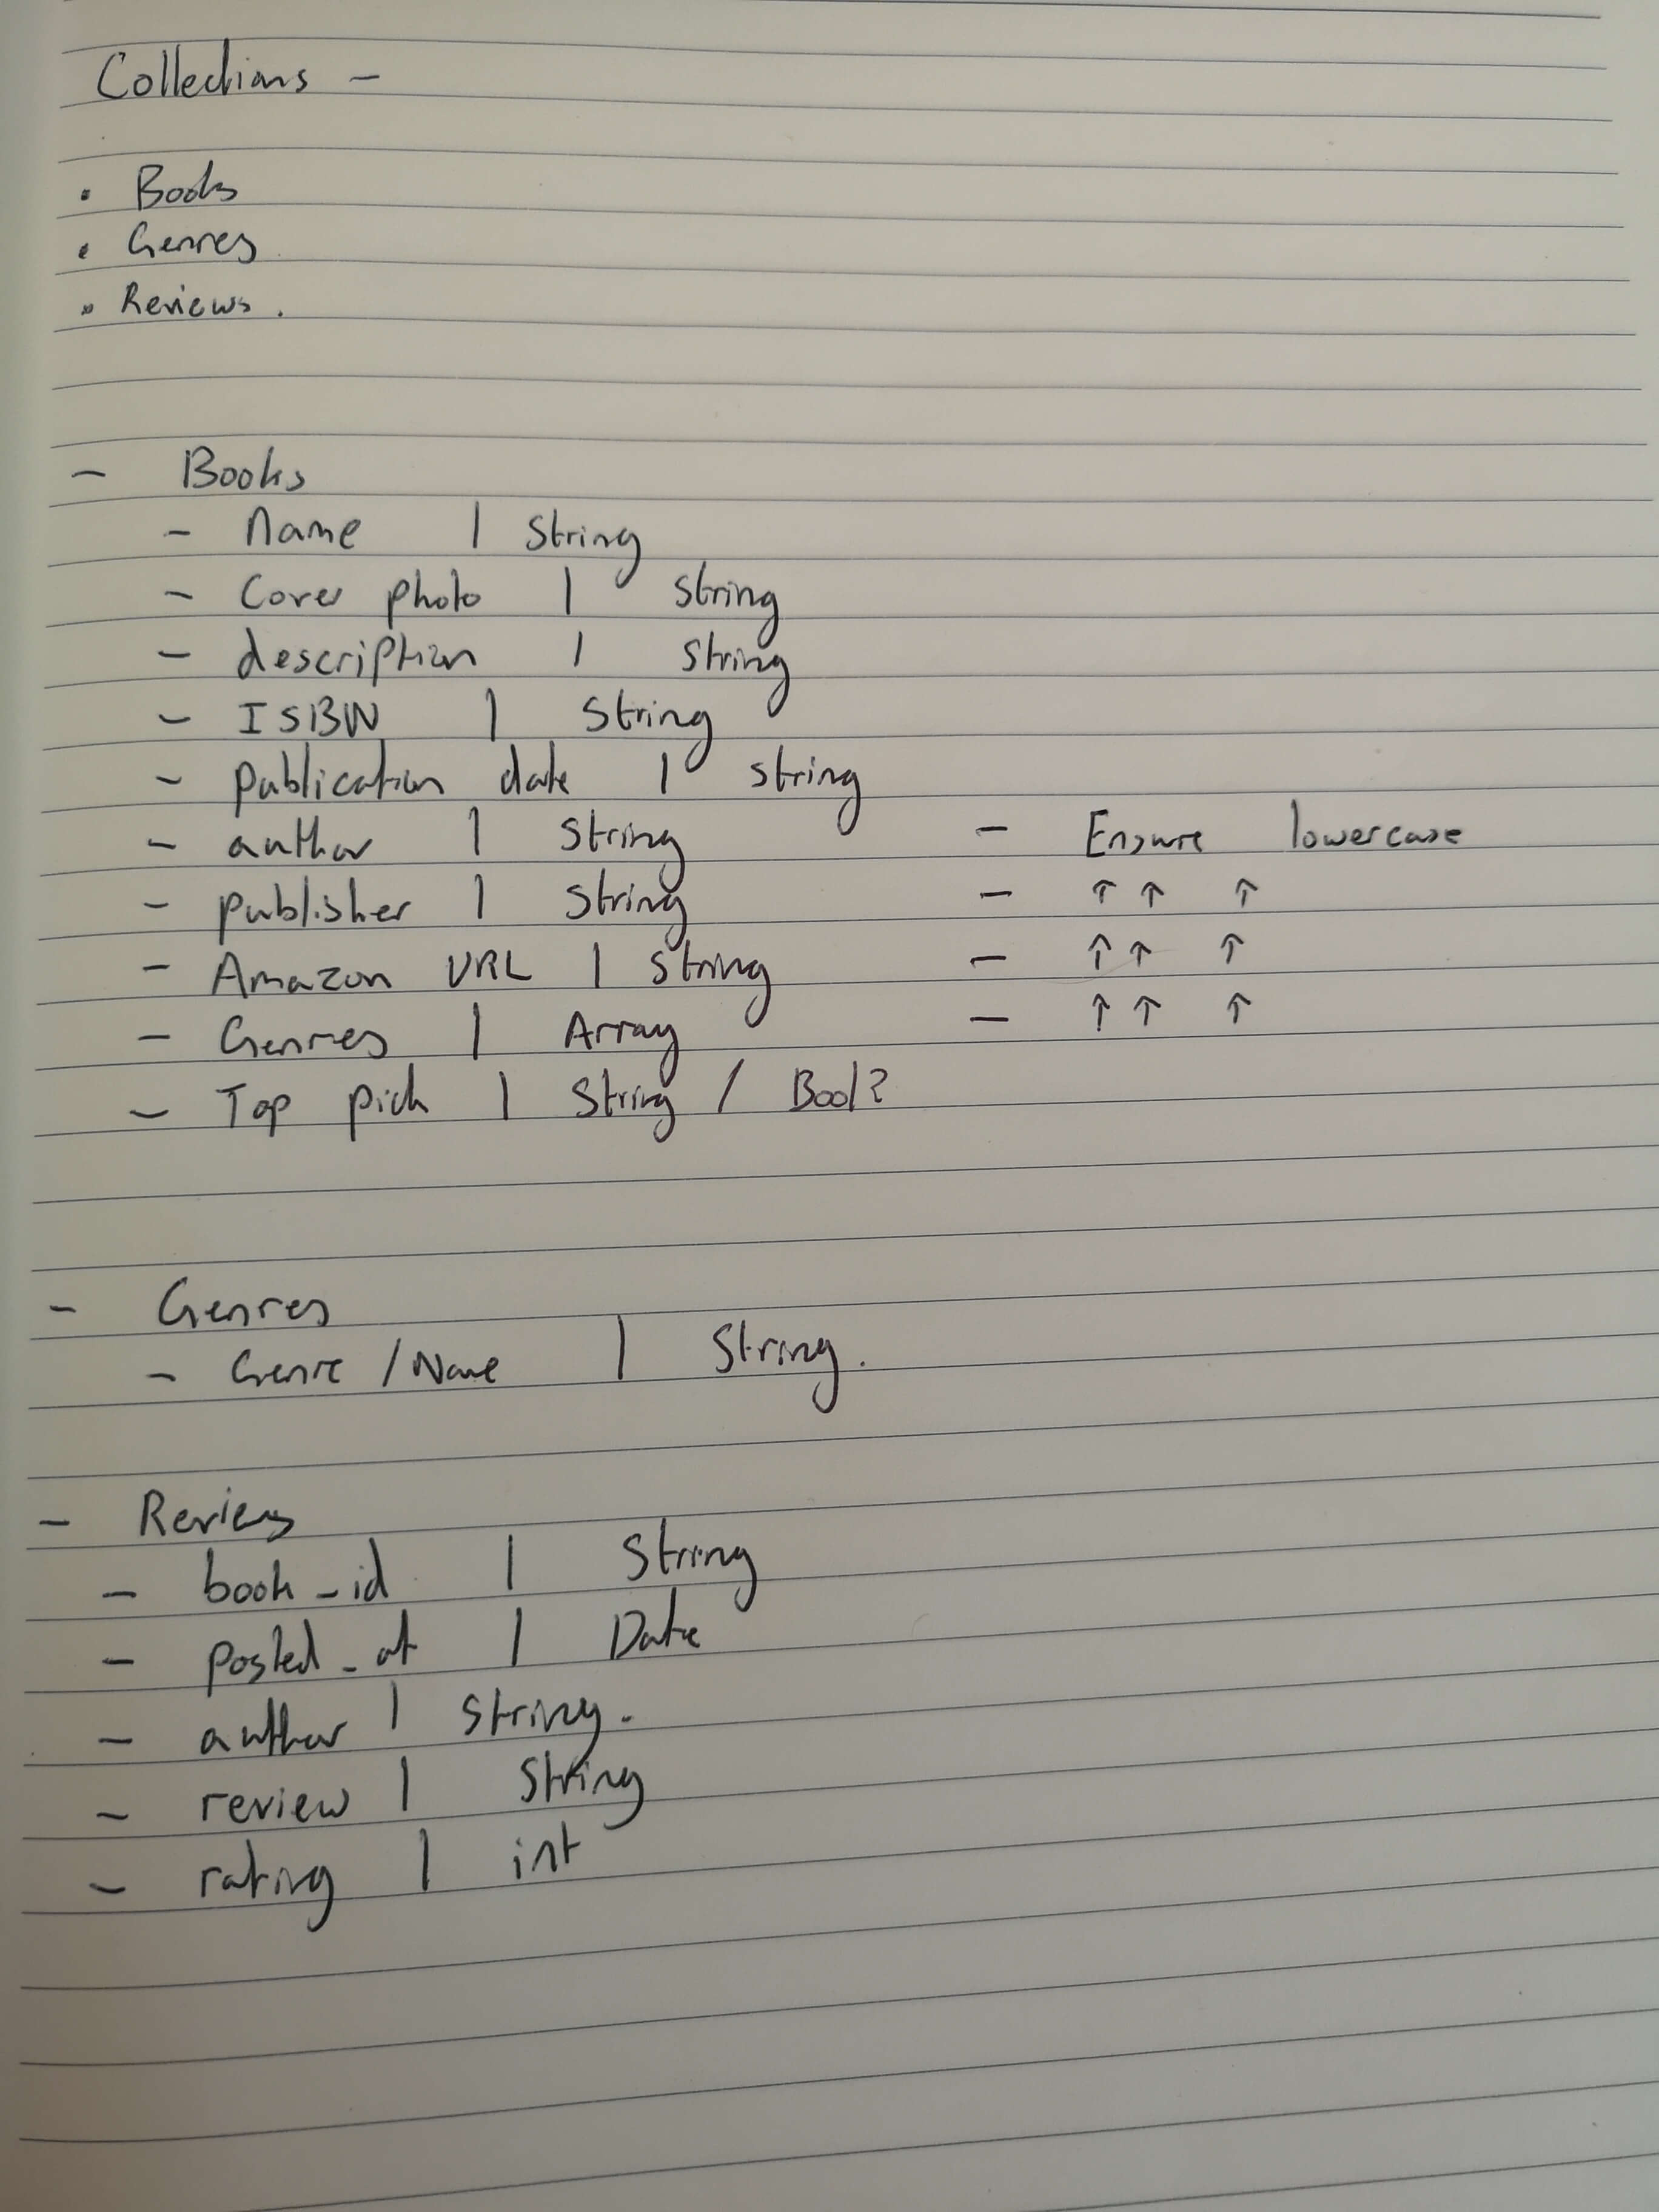 Collections -
• Books
• Genres
• Reviews.
- Books
- Name | String
- Cover photo | String
- description | String
- ISBN | String
- publication date | string
- author | String - Ensure lowercase
- publisher | String - ↑ ↑ ↑
- Amazon URL | String - ↑ ↑ ↑
- Genres | Array - ↑ ↑ ↑
- Top pick | String / Bool?
- Genres
- Genre / Name | String.
- Reviews
- book_id | String
- posted_at | Date
- author | String.
- review | String
- rating | int